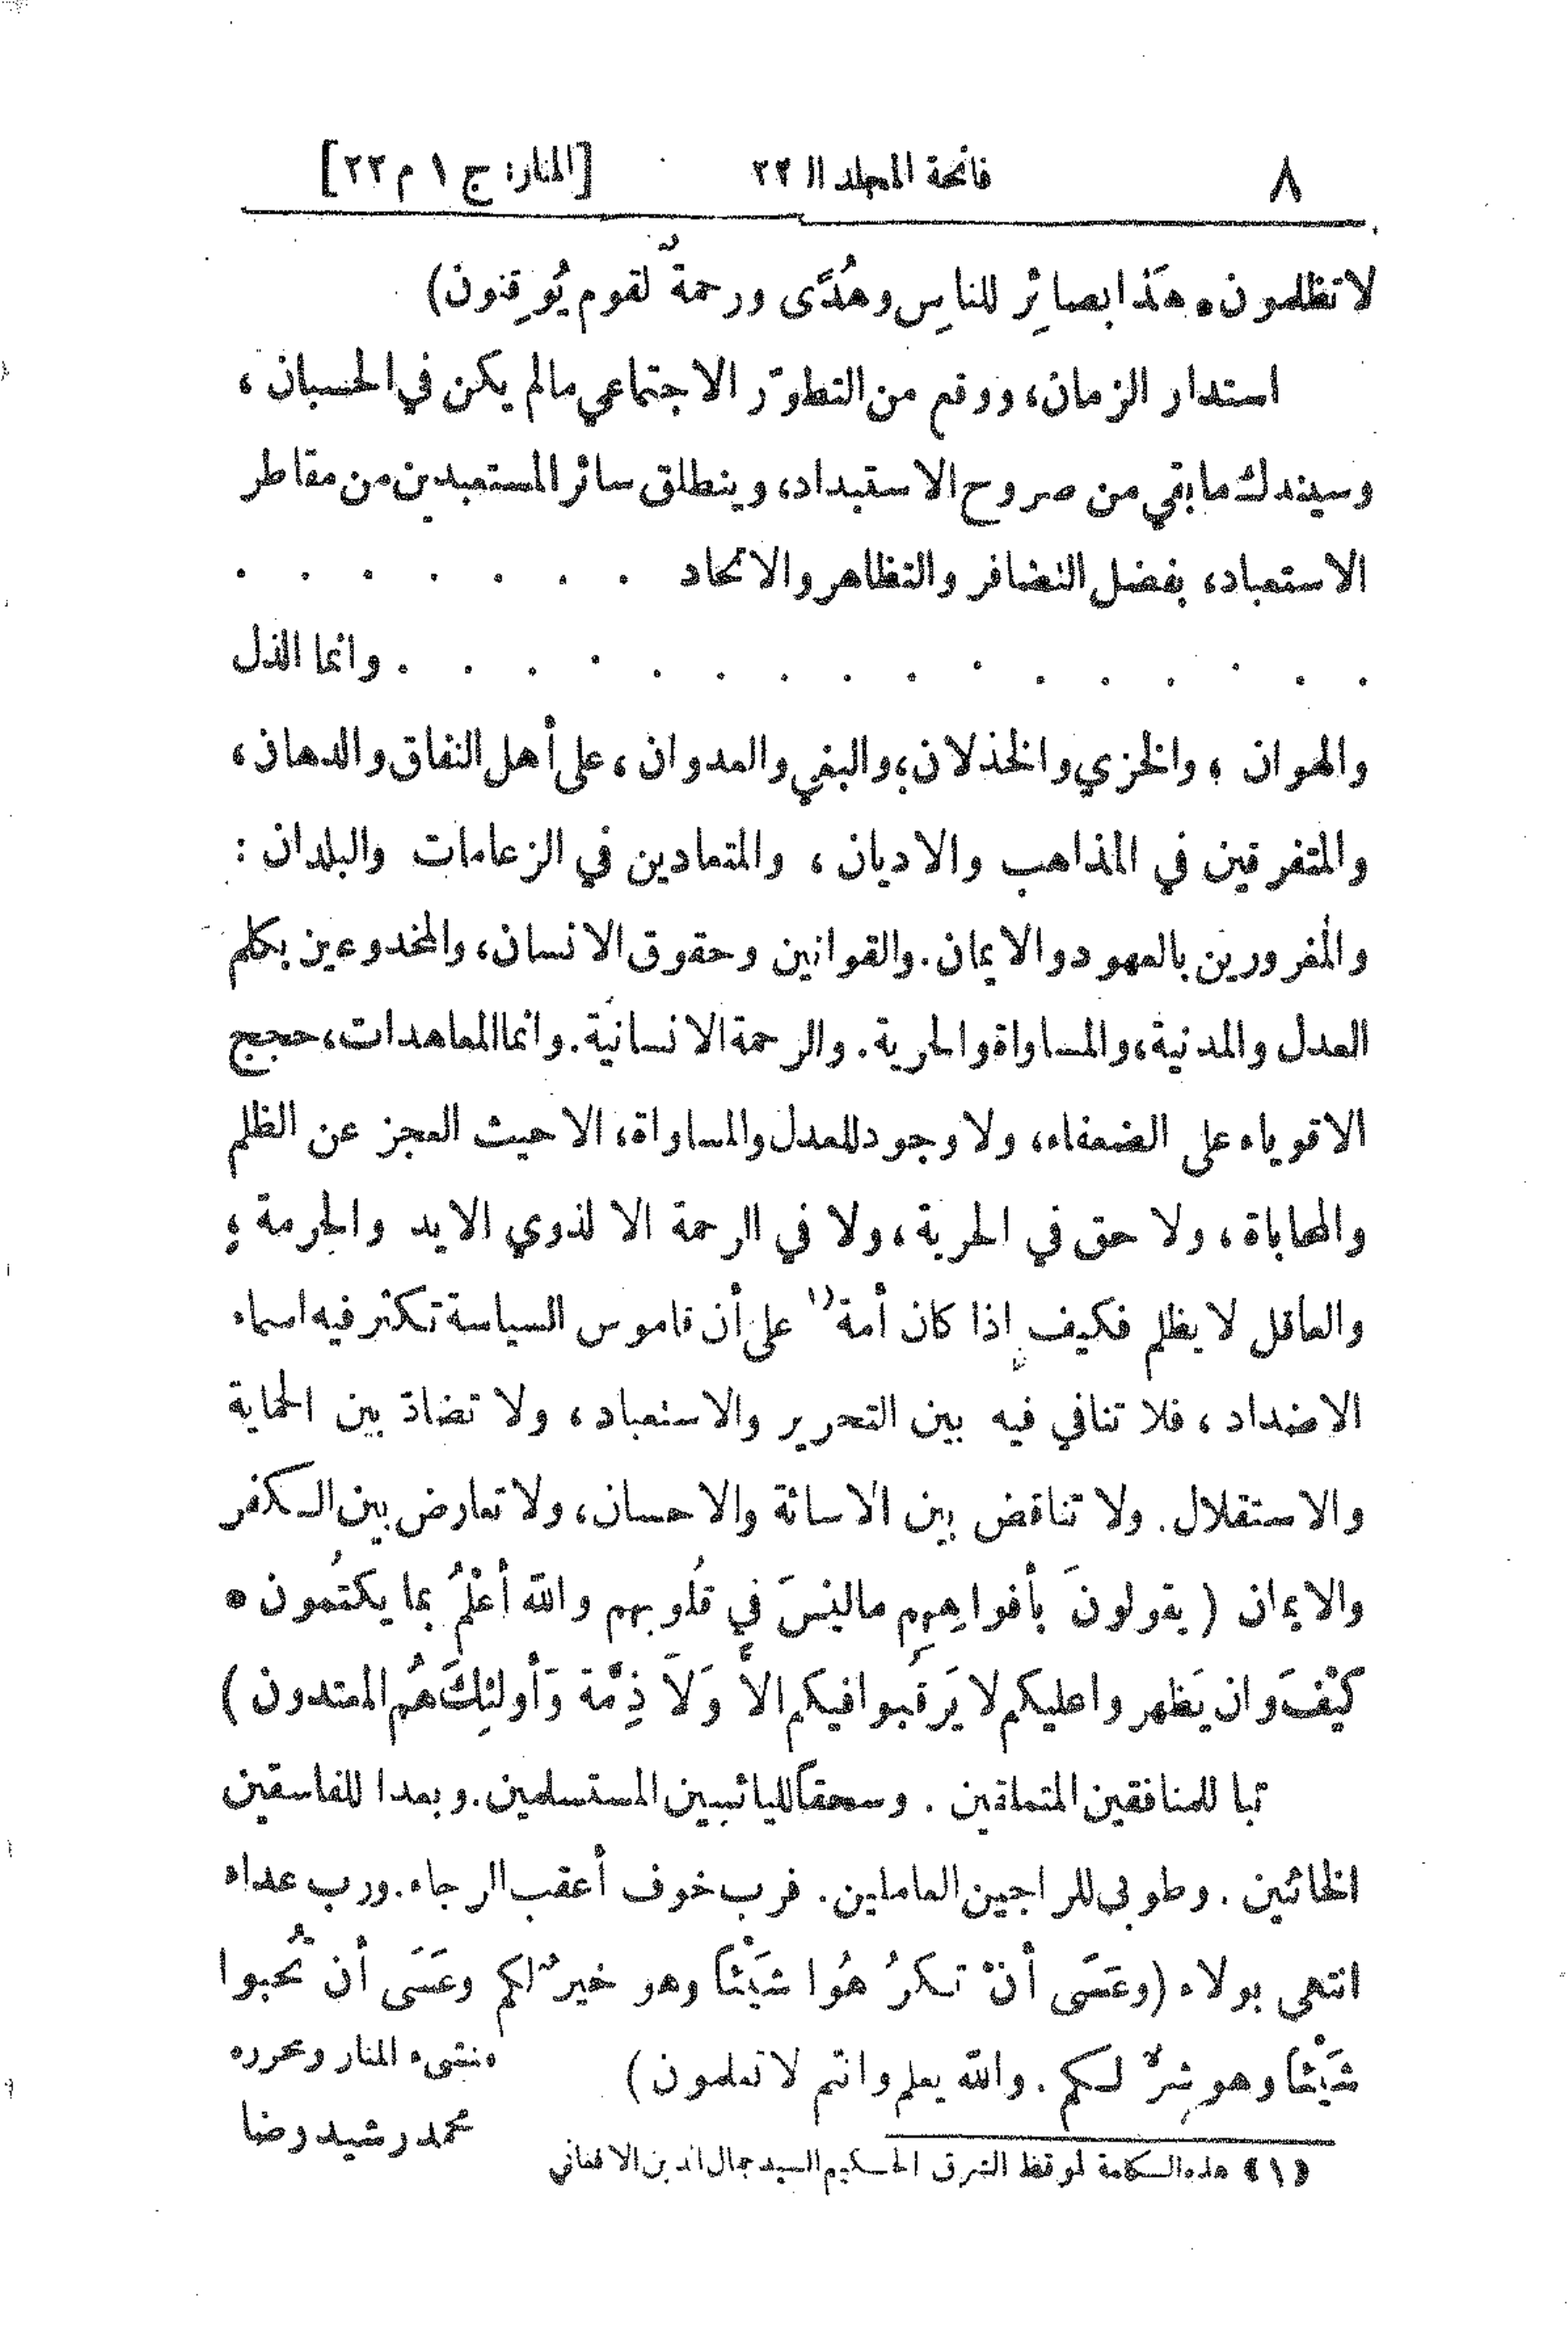 ٨ فاتحة المجلد الـ ٢٢ [المنار: ج ١ م ٢٢]
لا تظلمون • هَذا بصائِر للناسِ وهُدًى ورحمةٌ لقوم يُوقِنون)
استدار الزمان، ووقع من التطوّر الاجتماعي مالم يكن في الحسبان ،
وسيندك ما بقي من صروح الاستبداد، وينطلق سائر المستعبدين من مقاطر
الاستعباد، بفضل التضافر والتظاهر والاتحاد . . . . . . .
. . . . . . . . . . . . . . . وانما الذل
والهوان ، والخزي والخذلان، والبغي والعدوان، على أهل النفاق والدهان،
والمتفرقين في المذاهب والاديان ، والمتعادين في الزعامات والبلدان :
والمغرورين بالعهود والايمان. والقوانين وحقوق الانسان، والمخدوعين بكلم
العدل والمدنية، والمساواة والحرية. والرحمة الانسانية. وانما المعاهدات، حجج
الاقوياء على الضعفاء، ولا وجود للعدل والمساواة، الا حيث العجز عن الظلم
والمحاباة ، ولا حق في الحرية ، ولا في الرحمة الا لذوي الايد والجرمة ،
والعاقل لا يظلم فكيف إذا كان أمة (١ على أن قاموس السياسة تكثر فيه اسماء
الاضداد ، فلا تنافي فيه بين التحرير والاستعباد ، ولا تضادّ بين الحماية
والاستقلال. ولا تناقض بين الاسائة والاحسان، ولا تعارض بين الكفر
والايمان ( يقولونَ بأفواهِهِم ماليْسَ في قُلوبهم والله أعْلمُ بما يكتُمون •
كيْفَ وان يَظهروا عليكم لا يَرقُبوا فيكم الاًّ وَلاَ ذِمَّة وَأولئِكَ هُم المعتدون )
تبا للمنافقين المتملقين . وسحقاً لليائسين المستسلمين. وبعدا للفاسقين
الخائنين . وطوبى للراجين العاملين. فرب خوف أعقب الرجاء. ورب عداء
انتهى بولاء (وعَسَى أنْ تكرَهُوا شيْئاً وهو خيرٌ لكم وعَسَى أن تُحبوا
شيْئاً وهو شرٌّ لكم . والله يعلم وانتم لا تعلمون )
منشىء المنار ومحرره
محمد رشيد رضا
(١) هذه الكلمة لموقظ الشرق الحكيم السيد جمال الدين الافغاني